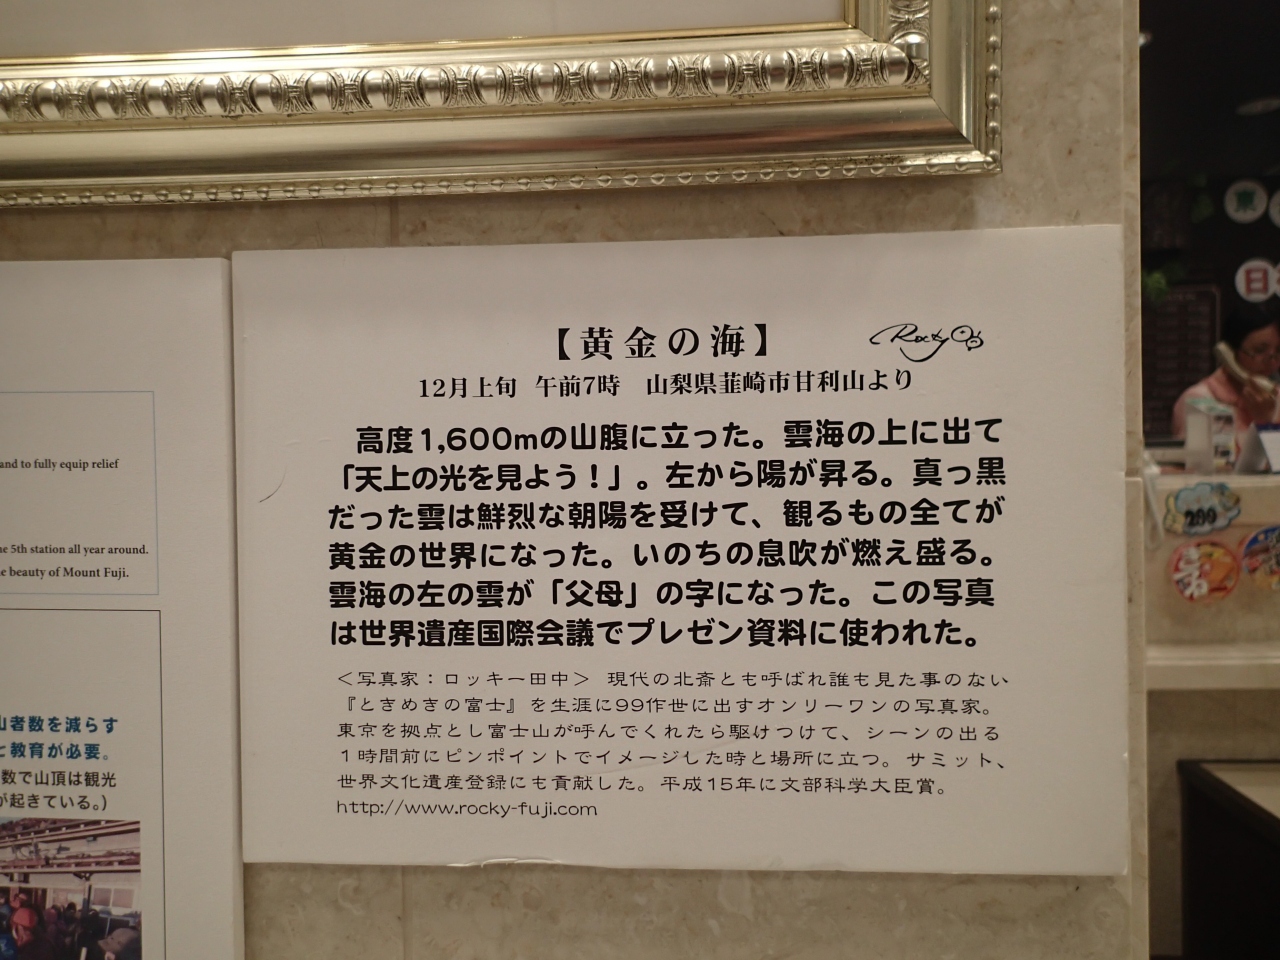 【黄金の海】
Rocky
12月上旬 午前7時 山梨県韮崎市甘利山より
高度1,600mの山腹に立った。雲海の上に出て
「天上の光を見よう！」。左から陽が昇る。真っ黒
だった雲は鮮烈な朝陽を受けて、観るもの全てが
黄金の世界になった。いのちの息吹が燃え盛る。
雲海の左の雲が「父母」の字になった。この写真
は世界遺産国際会議でプレゼン資料に使われた。
＜写真家：ロッキー田中＞ 現代の北斎とも呼ばれ誰も見た事のない
『ときめきの富士』を生涯に99作世に出すオンリーワンの写真家。
東京を拠点とし富士山が呼んでくれたら駆けつけて、シーンの出る
１時間前にピンポイントでイメージした時と場所に立つ。サミット、
世界文化遺産登録にも貢献した。平成15年に文部科学大臣賞。
http://www.rocky-fuji.com
and to fully equip relief
5th station all year around.
beauty of Mount Fuji.
山者数を減らす
と教育が必要。
数で山頂は観光
が起きている。）
日
200